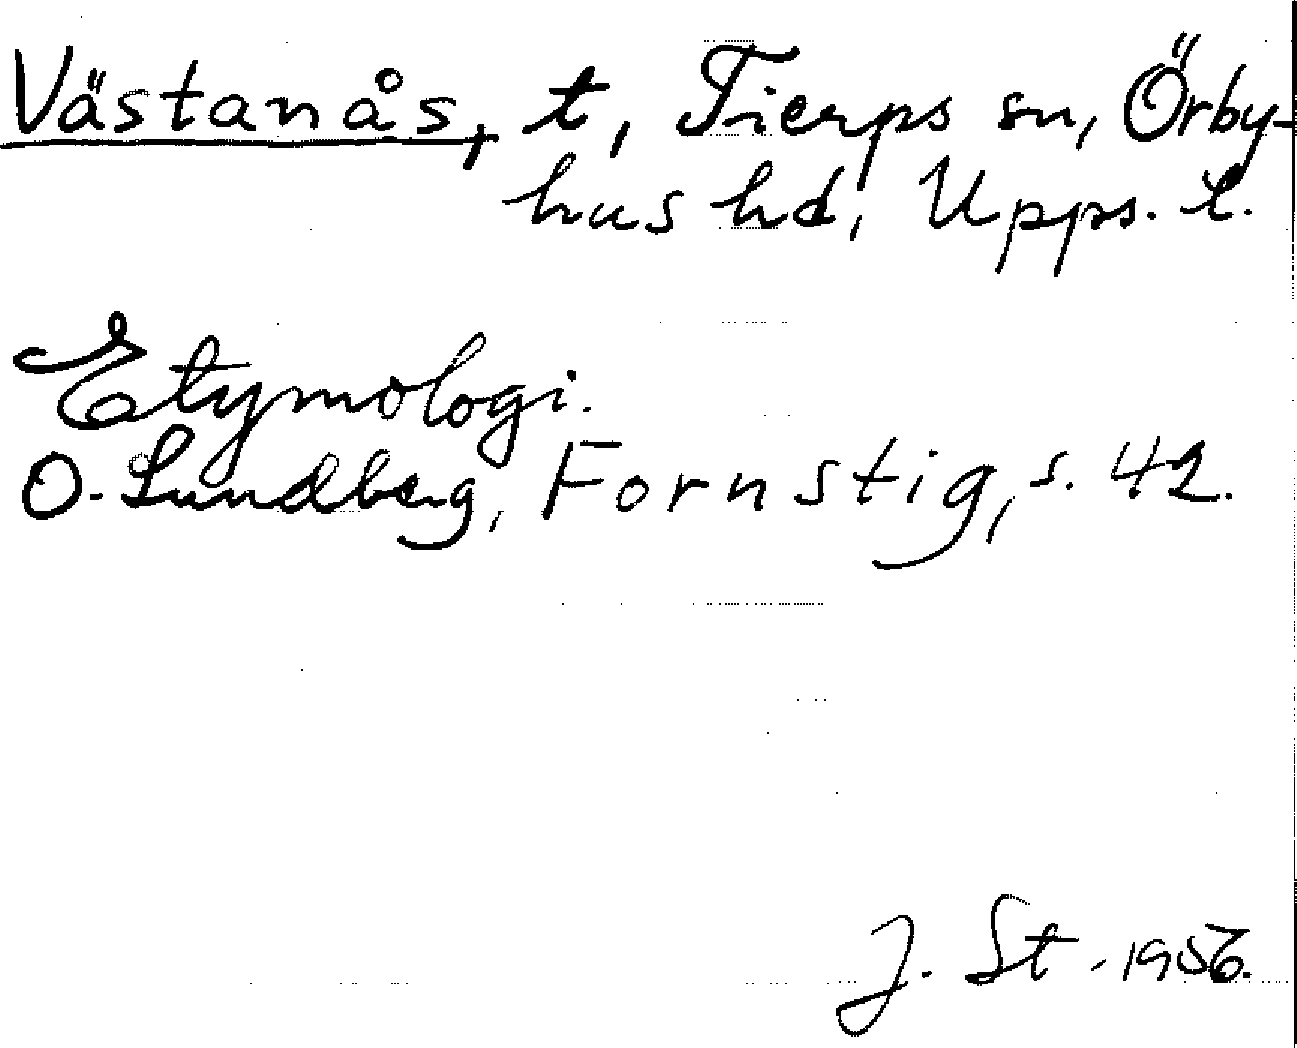 Västanås, t, Tierps sn, Örby-
hus hd, Upps. l.
Etymologi.
O. Lundberg, Fornstig, s. 42.
J. St. 1956.